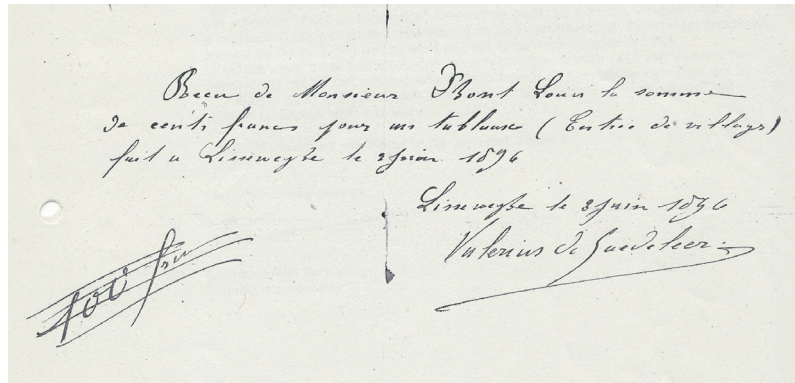 Recu de Monsieur Bont Louis la somme
de cents francs pour un tableau (Entrée de village)
fait a Lisseweghe le 2 Juin 1896
Lisseweghe le 3 Juin 1896
Valerius de Saedeleer
100 frs